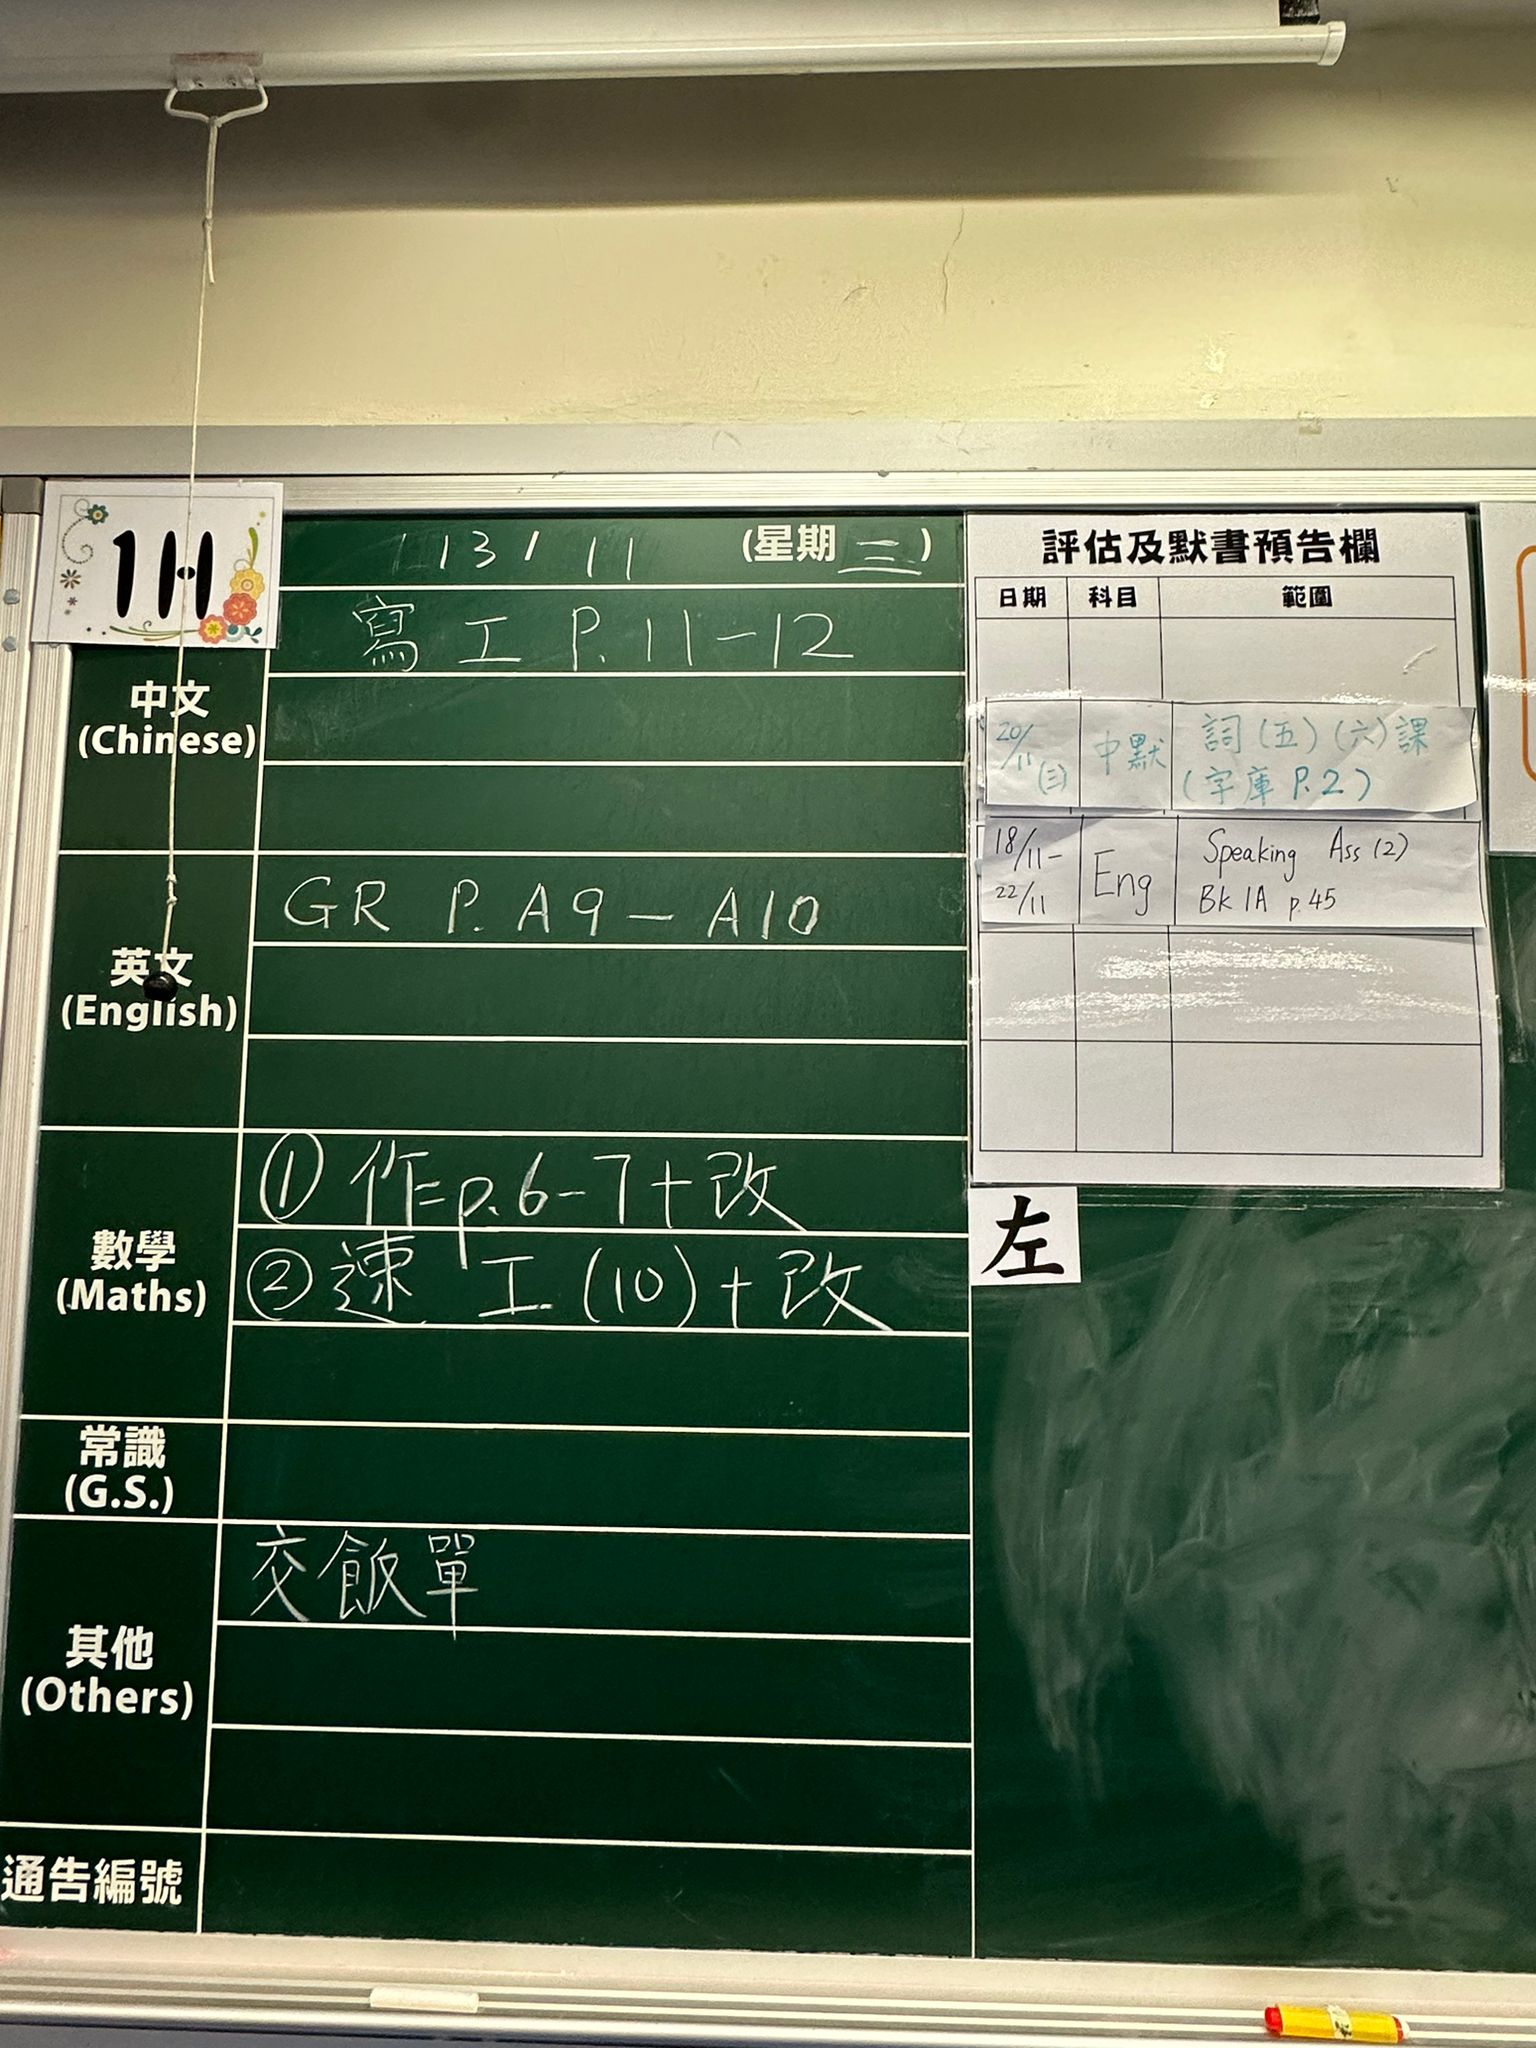 1H
13 / 11 (星期三)
中文
(Chinese)
寫工 P.11-12
英文
(English)
GR P.A9-A10
數學
(Maths)
① 作 p.6-7+改
② 速工(10)+改
常識
(G.S.)
其他
(Others)
交飯單
通告編號
評估及默書預告欄
日期 科目 範圍
20/11 (三) 中默 詞(五)(六)課
(字庫 P.2)
18/11- 22/11 Eng Speaking Ass (2)
Bk 1A p.45
左